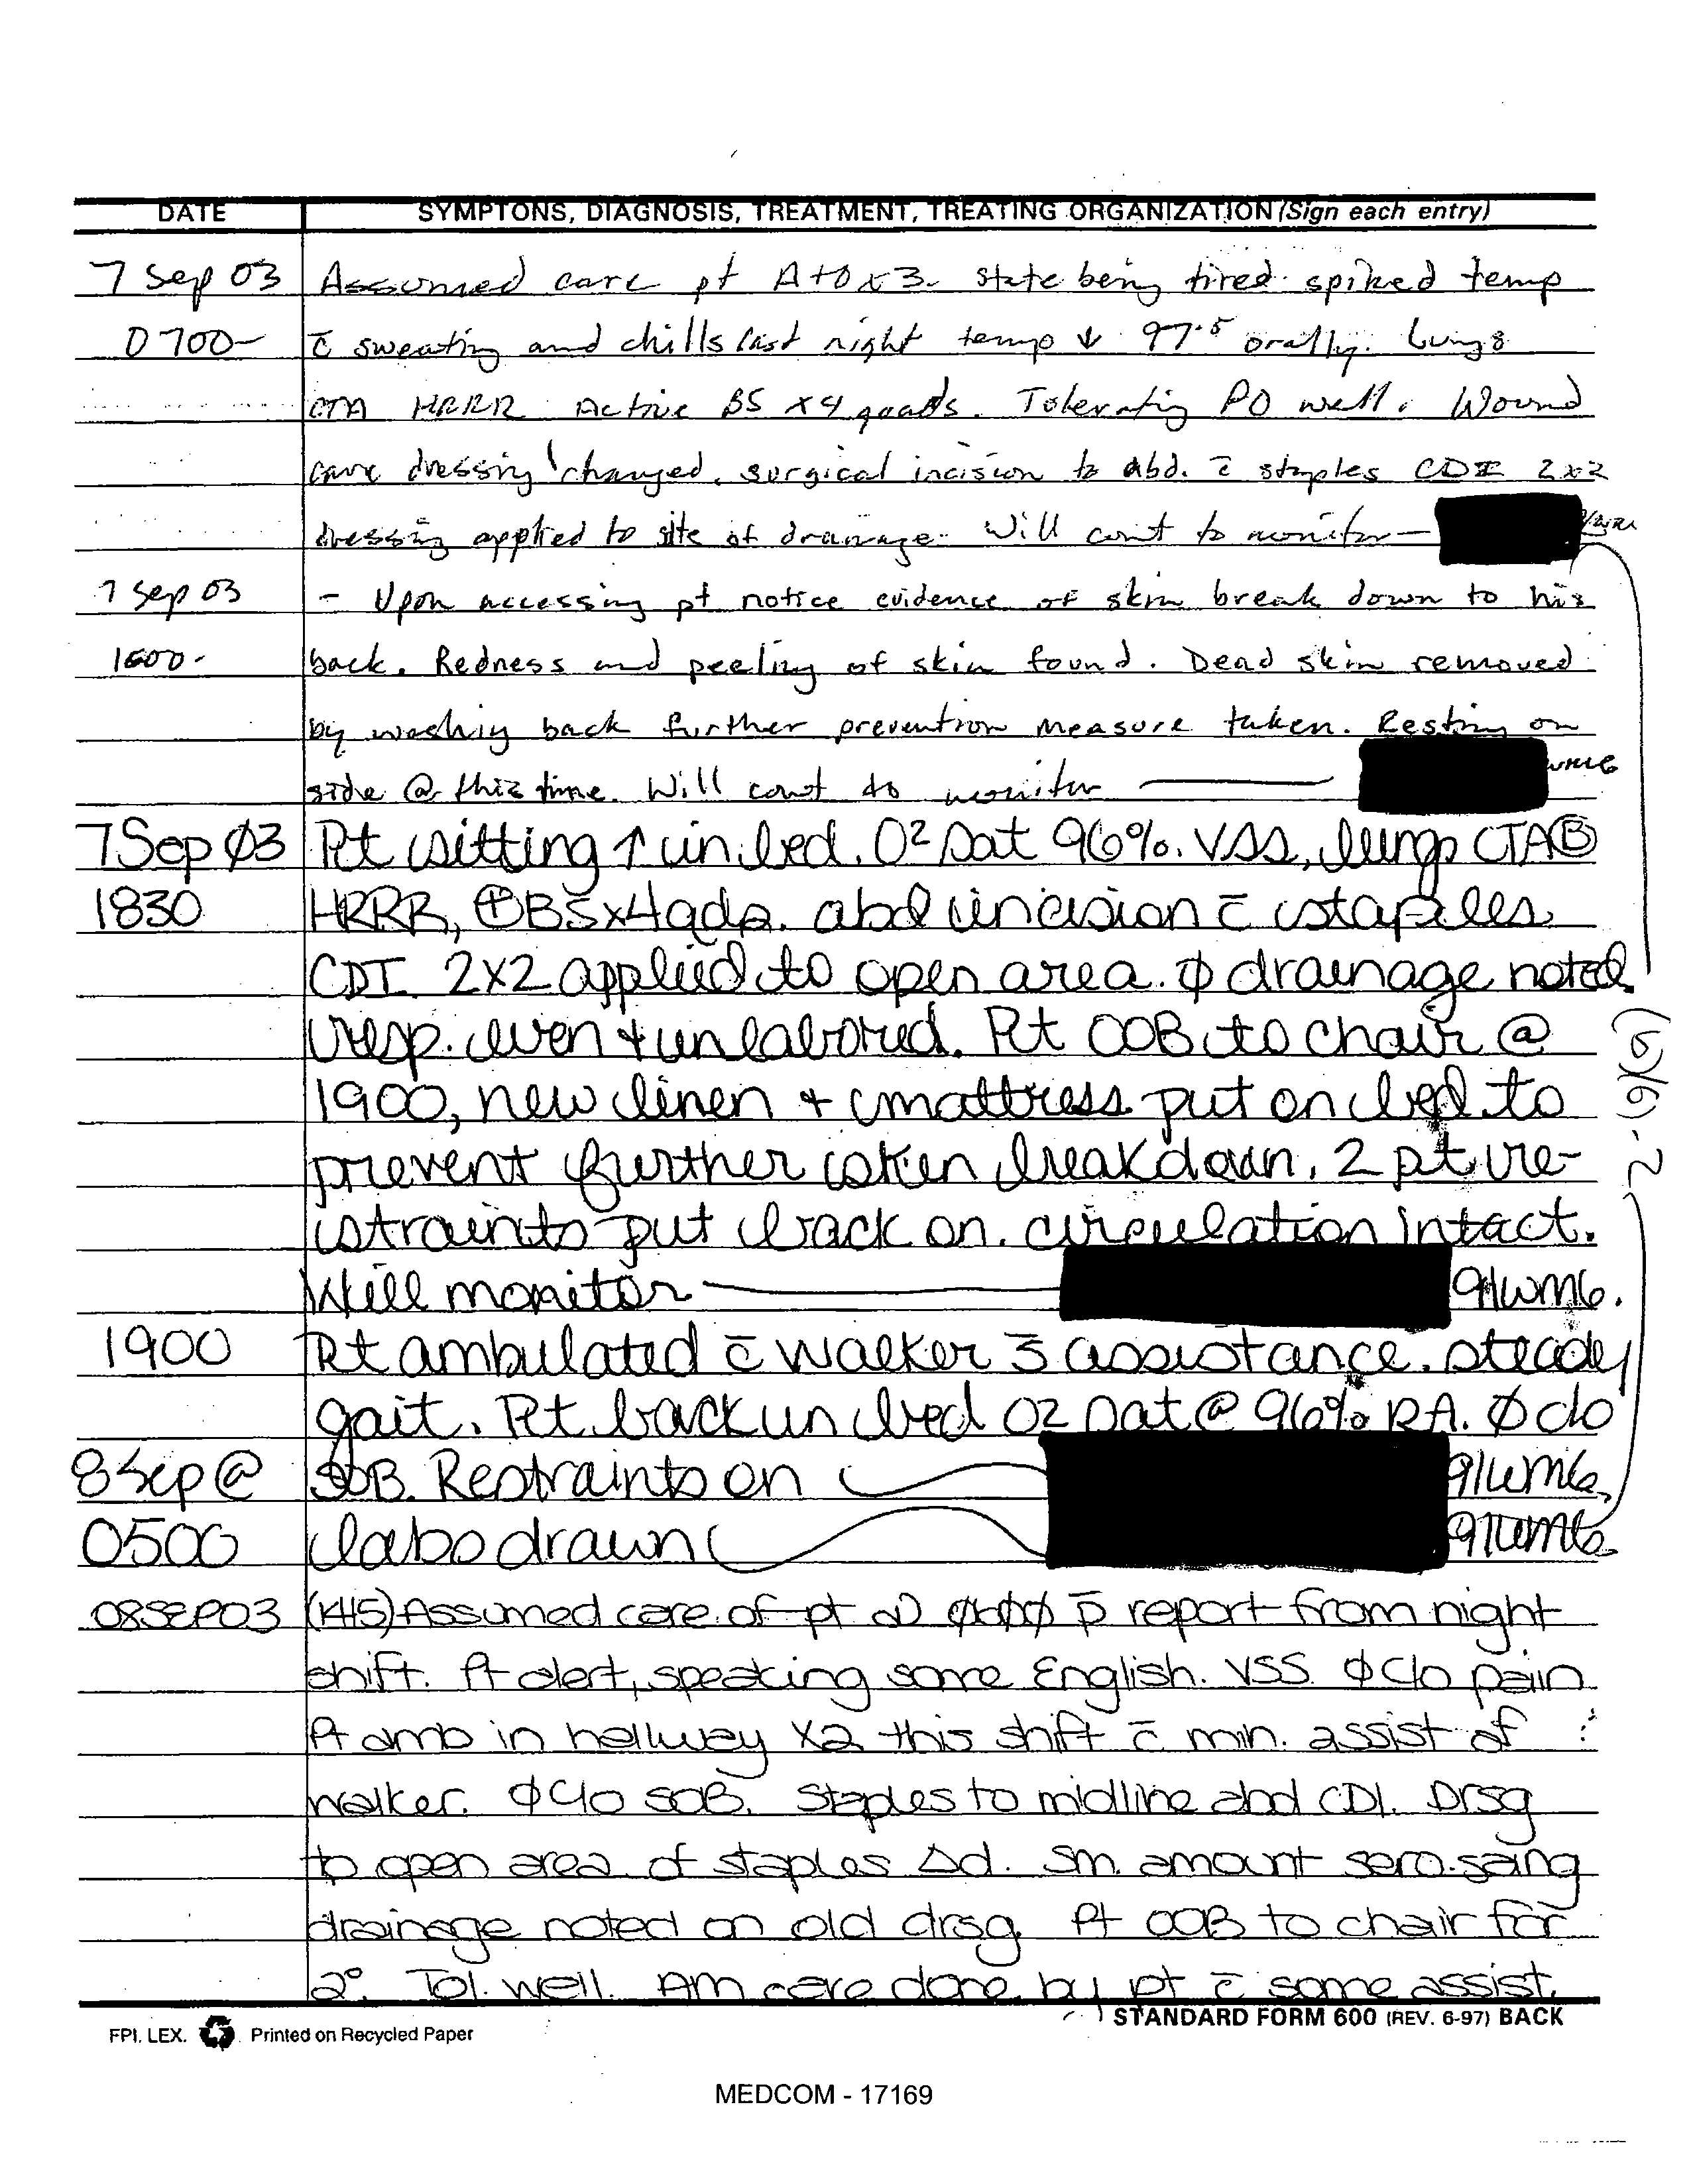 DATE SYMPTONS, DIAGNOSIS, TREATMENT, TREATING ORGANIZATION (Sign each entry)
7 Sep 03 Assumed care pt A+O x 3. state being tired. spiked temp
0700- c̄ sweating and chills last night temp ↓ 97.5 orally. Lungs
CTA HRRR Active BS x4 quads. Tolerating PO well. Wound
care dressing changed. surgical incision to abd. c̄ staples CDI 2x2
dressing applied to site of drainage. Will cont to monitor —
7 Sep 03 - Upon accessing pt notice evidence of skin break down to his
1600- back. Redness and peeling of skin found. Dead skin removed
by washing back further prevention measure taken. Resting on
side @ this time. Will cont to monitor — WM6
7 Sep Ø3 Pt sitting ↑ in bed. O2 Sat 96%. VSS, lungs CTA Ⓑ
1830 HRRR, ⊕BSx4qds. abd incision c̄ staples
CDI. 2x2 applied to open area. Ø drainage noted.
resp. even + unlabored. Pt OOB to chair @
1900, new linen + mattress put on bed to
prevent further skin breakdown. 2 pt re-
straints put back on. circulation intact.
Will monitor — 91WM6.
1900 Pt ambulated c̄ walker s̄ assistance. steady
gait. Pt back in bed O2 Sat @ 96% RA. Ø c/o
8 Sep @ SOB. Restraints on 91WM6
0500 labs drawn 91WM6
(b)(6)-2
08SEP03 Assumed care of pt @ Ø6ØØ p̄ report from night
shift. Pt alert, speaking some English. VSS. Ø c/o pain
Pt amb in hallway x2 this shift c̄ min. assist of
walker. Ø c/o SOB. Staples to midline abd CDI. Drsg
to open area of staples Δd. Sm. amount sero.sang
drainage noted on old drsg. Pt OOB to chair for
2°. Tol. well. AM care done by pt c̄ some assist.
FPI. LEX. Printed on Recycled Paper STANDARD FORM 600 (REV. 6-97) BACK
MEDCOM - 17169